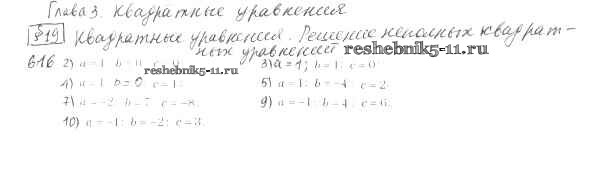 Глава 3. Квадратные уравнения
§19 Квадратные уравнения. Решение неполных квадрат-
ных уравнений reshebnik5-11.ru
616 2) a=1 b=0 3) a=1; b=1; c=0
reshebnik5-11.ru
4) a=1 b=0 c=1; 5) a=1; b=-4; c=2
7) a=-2; b=7; c=-8; 9) a=-1; b=4; c=6;
10) a=-1; b=-2; c=3.